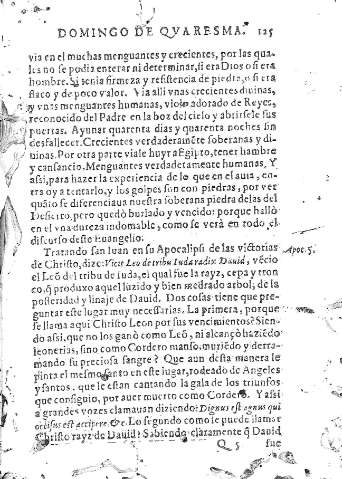 DOMINGO DE QVARESMA. 125
via en el muchas menguantes y crecientes, por las qua-
les no se podia enterar ni determinar, si era Dios o si era
hombre. Si tenia firmeza y resistencia de piedra, o si era
flaco y de poco valor. Via alli vnas crecientes diuinas,
y vnas menguantes humanas, violo adorado de Reyes,
reconocido del Padre en la boz del cielo y abrirsele sus
puertas. Ayunar quarenta dias y quarenta noches sin
desfallecer. Crecientes verdaderamẽte soberanas y di-
uinas. Por otra parte viale huyr a Egipto, tener hambre
y cansancio. Menguantes verdaderamente humanas. Y
assi, para hazer la experiencia de lo que en el auia, en-
tra oy a tentarlo, y los golpes son con piedras, por ver
quãto se diferenciaua nuestra soberana piedra de las del
Desierto, pero quedò burlado y vencido: porque hallò
en el vna dureza indomable, como se verà en todo el
discurso deste Euangelio.
Tratando san Iuan en su Apocalipsi de las victorias
de Christo, dize: Vicit Leo de tribu Iuda radix Dauid, vẽcio
Apoc. 5.
el Leõ del tribu de Iuda, el qual fue la rayz, cepa y tron
co, q̃ produxo aquel luzido y bien medrado arbol, de la
posteridad y linaje de Dauid. Dos cosas tiene que pre-
guntar este lugar muy necessarias. La primera, porque
se llama aqui Christo Leon por sus vencimientos? Sien-
do assi, que no los ganò como Leõ, ni alcançò haziẽdo
leonerias, sino como Cordero manso, muriẽdo y derra-
mando su preciosa sangre? Que aun desta manera le
pinta el mesmo santo en este lugar, rodeado de Angeles
y santos, que le estan cantando la gala de los triunfos
que consiguio, por auer muerto como Cordero. Y assi
a grandes vozes clamauan diziendo: Dignus est agnus qui
occisus est accipere, &c. Lo segundo como le puede llamar
Christo rayz de Dauid? Sabiendo claramente q̃ Dauid
Q 5 fue